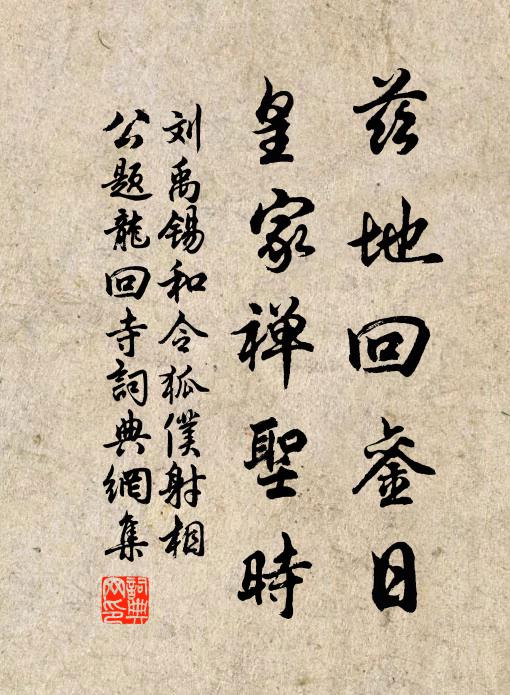 兹地回銮日
皇家禅聖時
刘禹锡和令狐僕射相
公题龍回寺詞典網集
詞典网印